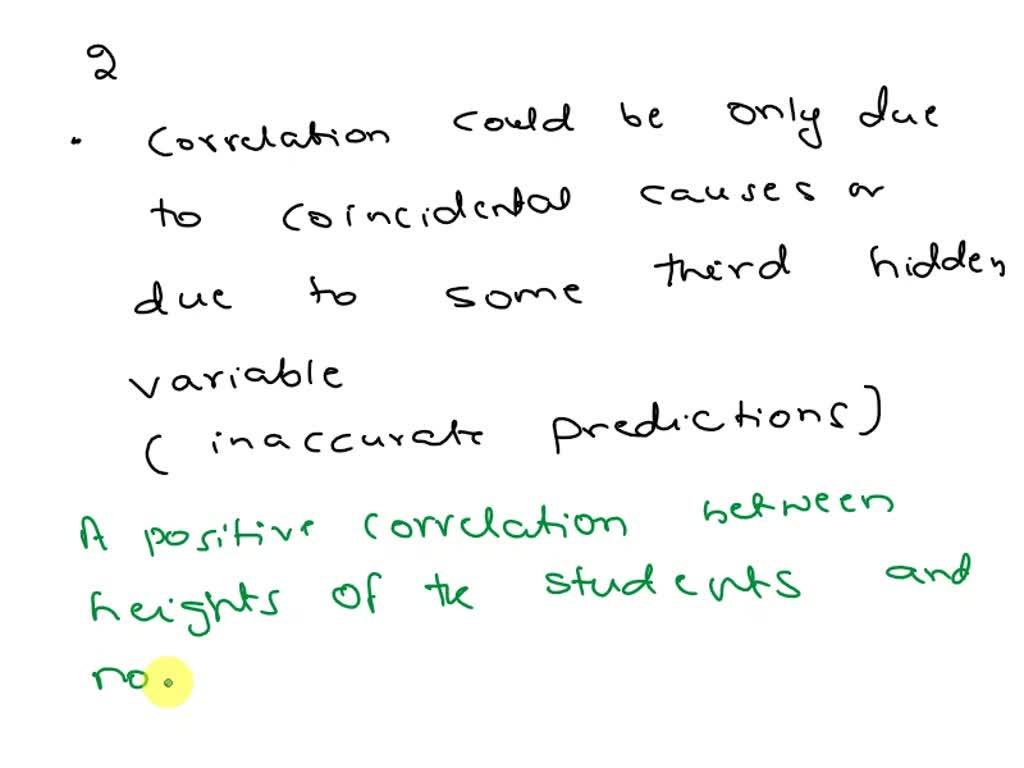 2
. Correlation could be only due
to coincidental causes or
due to some third hidden
variable
( inaccurate predictions)
A positive correlation between
heights of the students and
no.